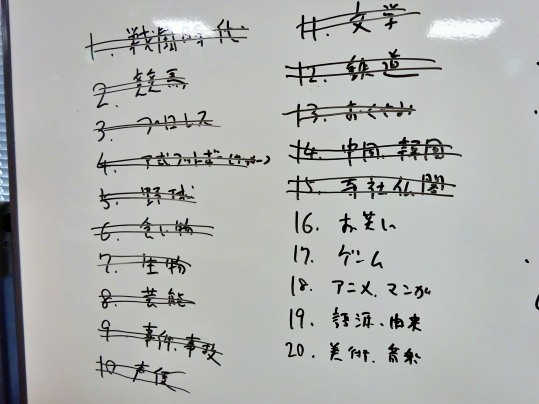 1. 戦国時代
2. 競馬
3. プロレス
4.
5. 野球
6. 食い物
7. 生物
8. 芸能
9 事件、事故
10 声優
11. 文学
12. 鉄道
13.
14. 中国、韓国
15. 寺社仏閣
16. お笑い
17. ゲーム
18. アニメ、マンガ
19. 語源、由来
20. 美術、音楽